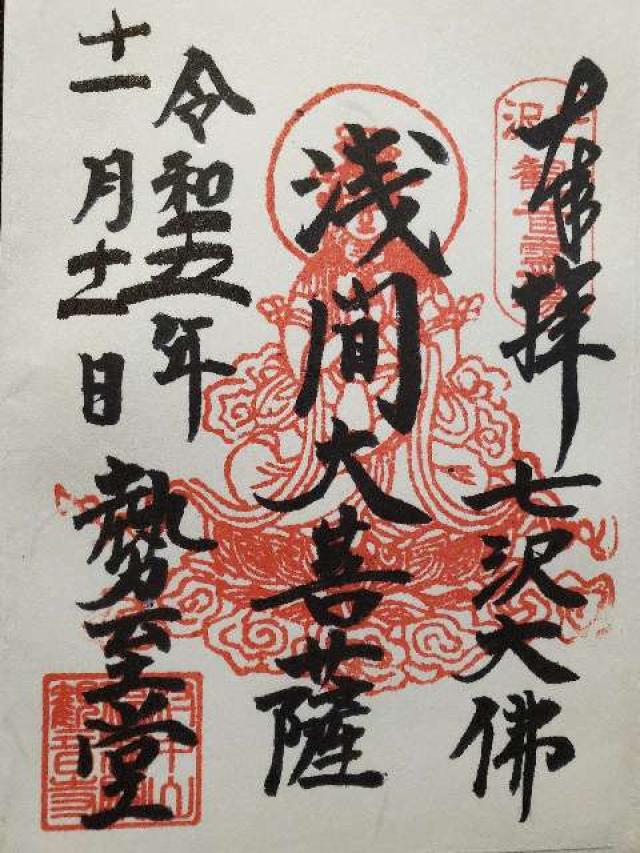 奉拝
七沢大佛
浅間大菩薩
令和五年
十一月十二日
勢至堂